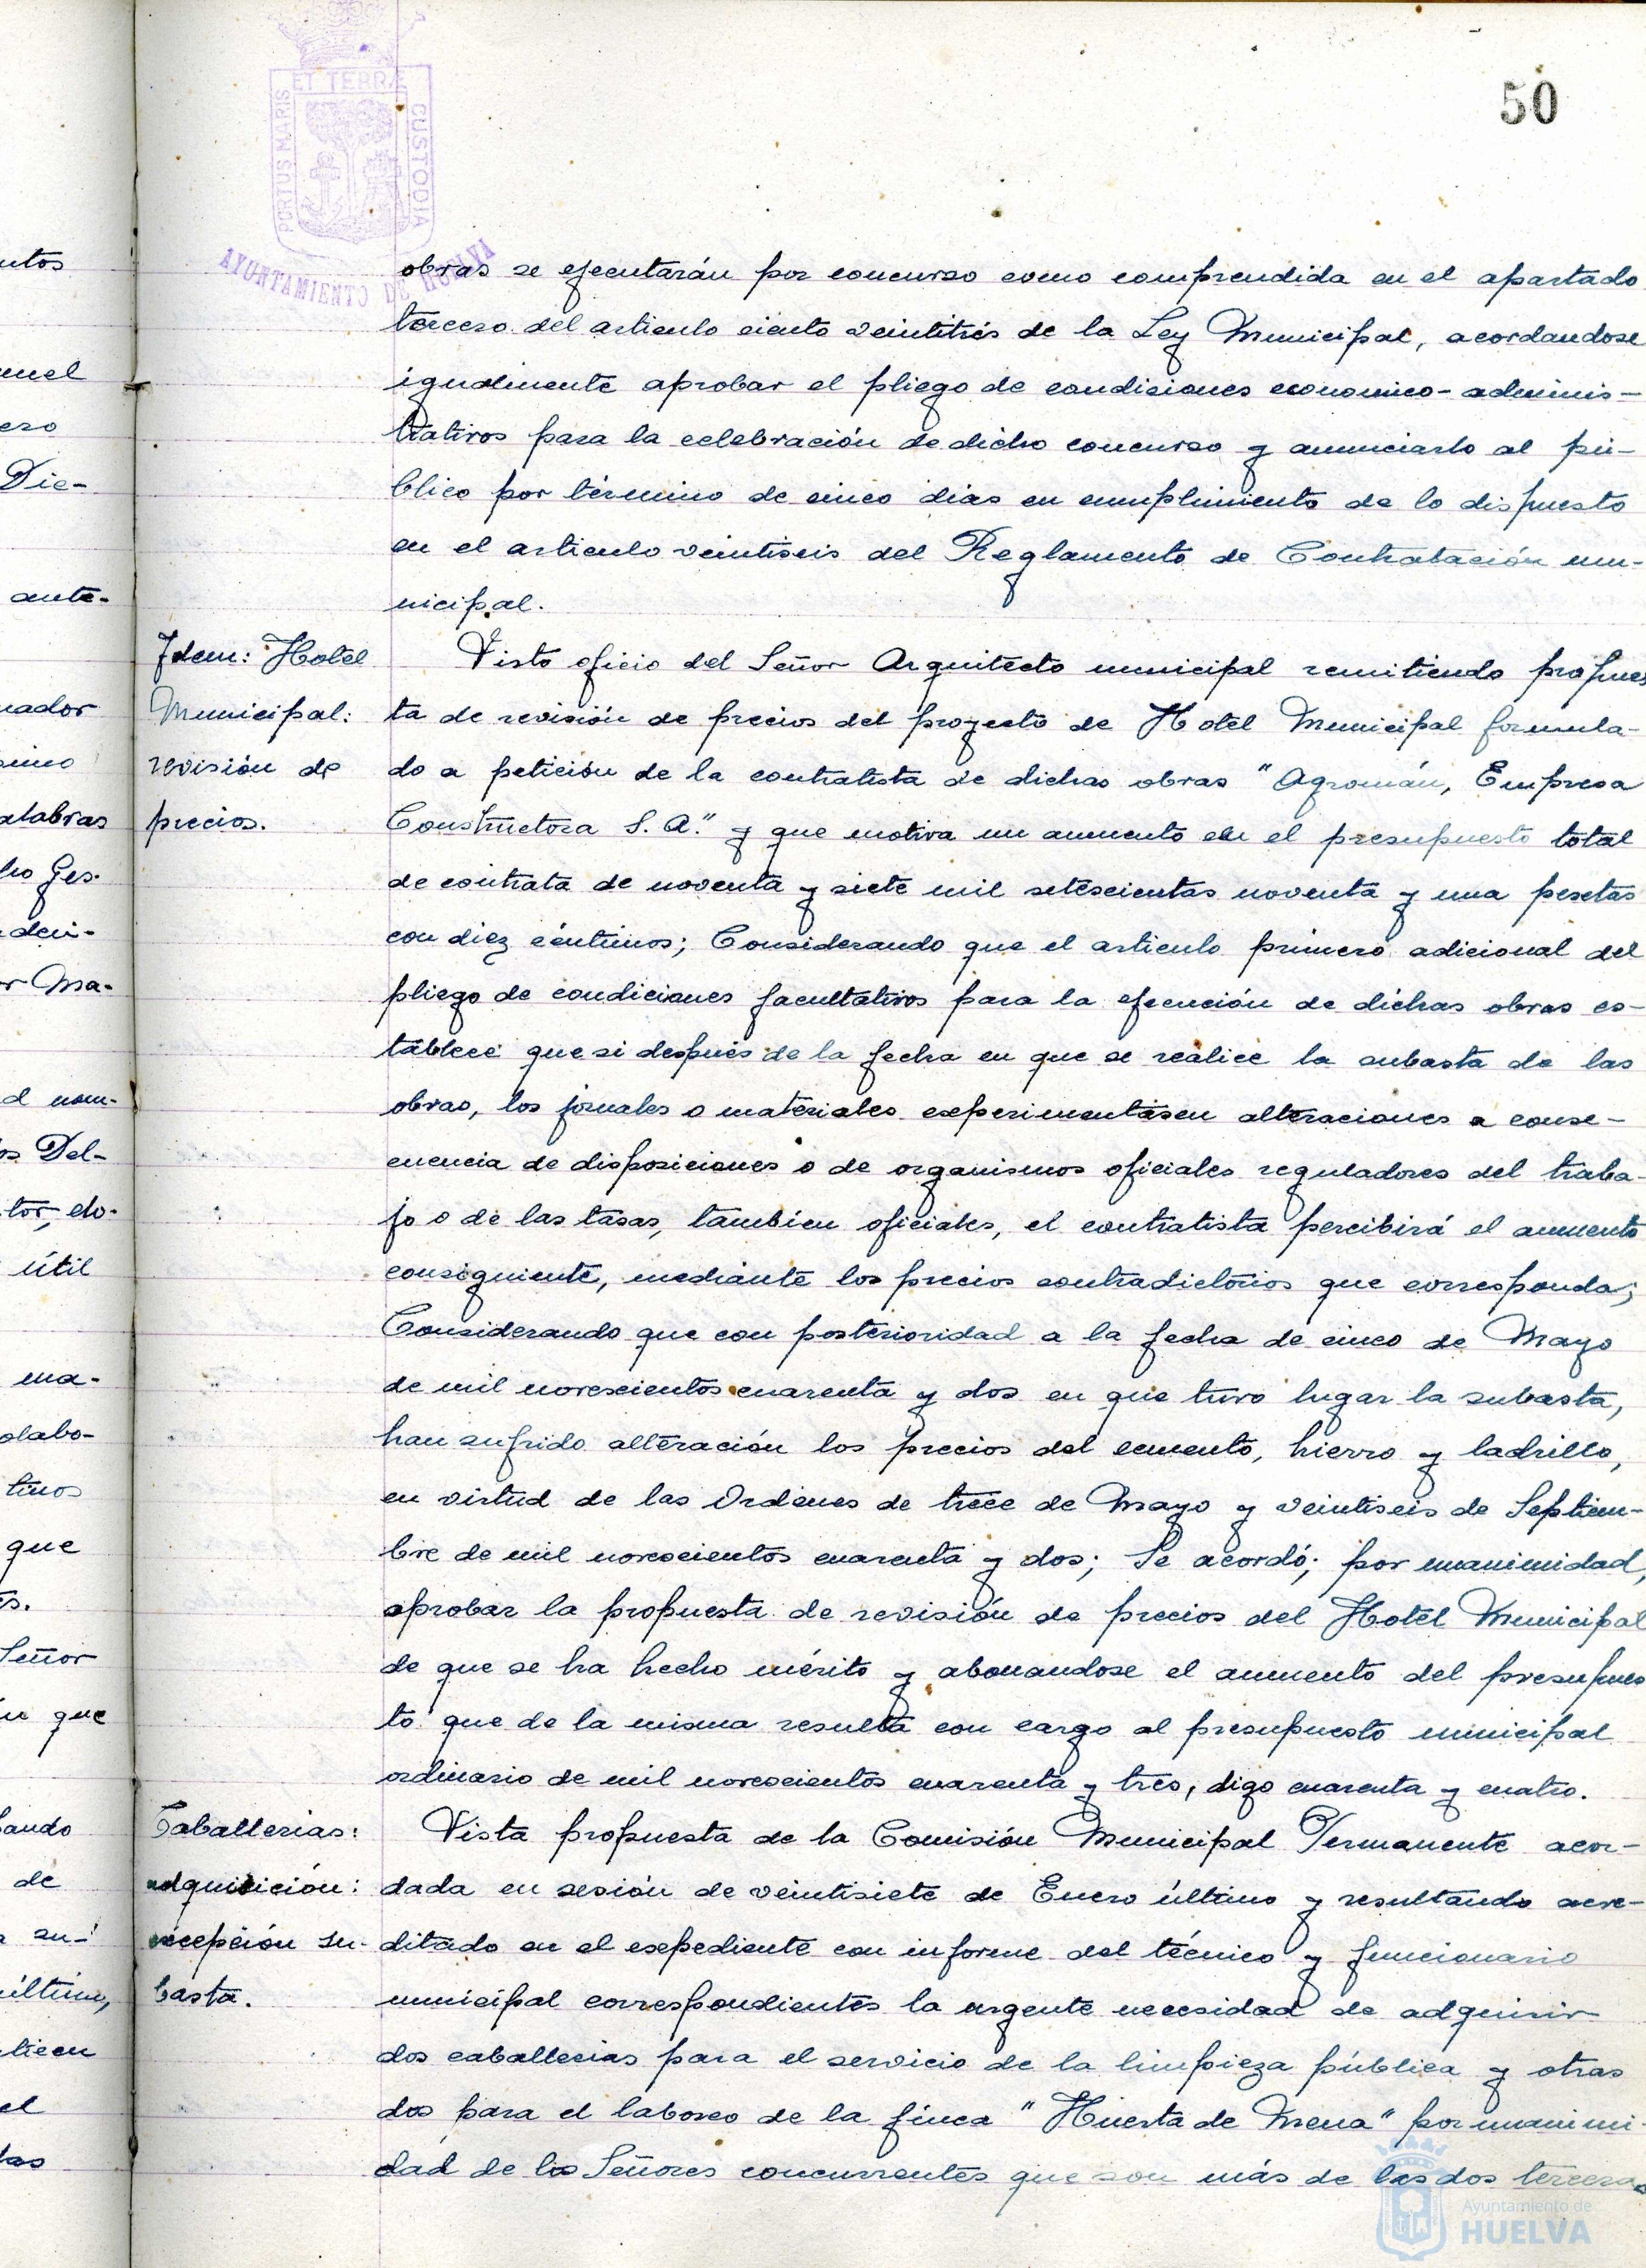 50
ET TERRÆ
PORTUS MARIS
CUSTODIA
AYUNTAMIENTO DE HUELVA
obras se ejecutarán por concurso como comprendida en el apartado
tercero del articulo ciento veintitrés de la Ley Municipal, acordandose
igualmente aprobar el pliego de condiciones economico-adminis-
trativos para la celebración de dicho concurso y anunciarlo al pú-
blico por término de cinco dias en cumplimiento de lo dispuesto
en el articulo veintiseis del Reglamento de Contratación mu-
nicipal.
Idem: Hotel
Municipal:
revisión de
precios.
Visto oficio del Señor Arquitecto municipal remitiendo propues
ta de revisión de precios del proyecto de Hotel Municipal formula-
do a petición de la contratista de dichas obras "Agromán, Empresa
Constructora S. A." y que motiva un aumento en el presupuesto total
de contrata de noventa y siete mil setescientas noventa y una pesetas
con diez céntimos; Considerando que el articulo primero adicional del
pliego de condiciones facultativos para la ejecución de dichas obras es-
tablece que si después de la fecha en que se realice la subasta de las
obras, los jornales o materiales experimentasen alteraciones a conse-
cuencia de disposiciones o de organismos oficiales reguladores del traba-
jo o de las tasas, tambien oficiales, el contratista percibirá el aumento
consiguiente, mediante los precios contradictorios que corresponda;
Considerando que con posterioridad a la fecha de cinco de Mayo
de mil novescientos cuarenta y dos en que tuvo lugar la subasta,
han sufrido alteración los precios del cemento, hierro y ladrillo,
en virtud de las Ordenes de trece de Mayo y veintiseis de Septiem-
bre de mil novescientos cuarenta y dos; Se acordó; por unanimidad,
aprobar la propuesta de revisión de precios del Hotel Municipal
de que se ha hecho mérito y abonandose el aumento del presupues
to que de la misma resulta con cargo al presupuesto municipal
ordinario de mil novescientos cuarenta y tres, digo cuarenta y cuatro.
Caballerias:
adquisición:
excepción su-
basta.
Vista propuesta de la Comisión Municipal Permanente acor-
dada en sesión de veintisiete de Enero último y resultando acre-
ditado en el expediente con informe del técnico y funcionario
municipal correspondientes la urgente necesidad de adquirir
dos caballerias para el servicio de la limpieza pública y otras
dos para el laboreo de la finca "Huerta de Mena" por unanimi-
dad de los Señores concurrentes que son más de las dos terceras
Ayuntamiento de
HUELVA